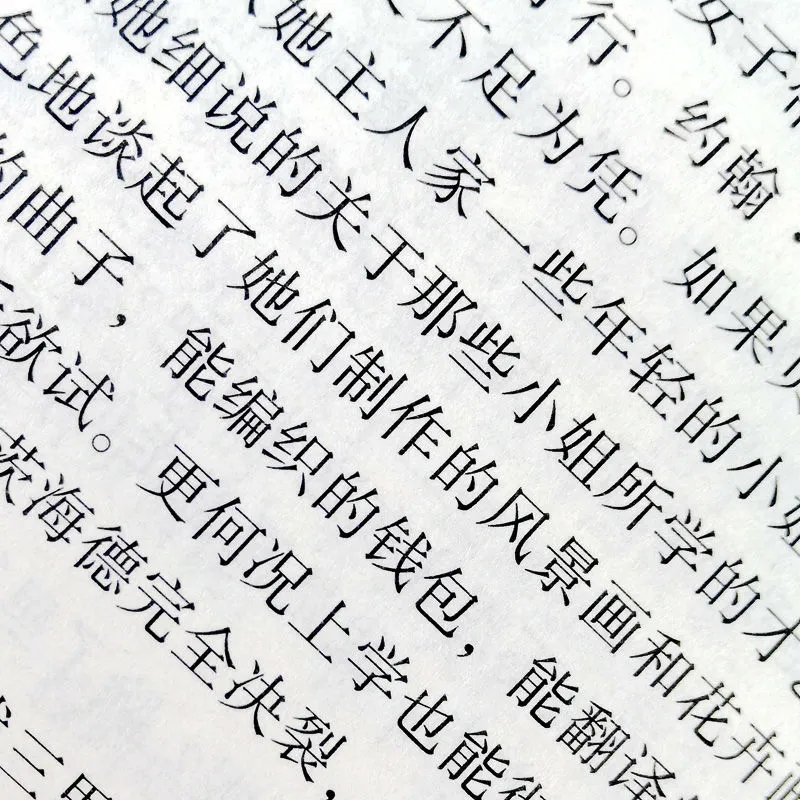 女子
行。约翰，
不足为凭。如果
她主人家一些年轻的小姐
她细说的关于那些小姐所学的才
色地谈起了她们制作的风景画和花卉
的曲子，能编织的钱包，能翻译
欲试。更何况上学也能
茨海德完全决裂，
三